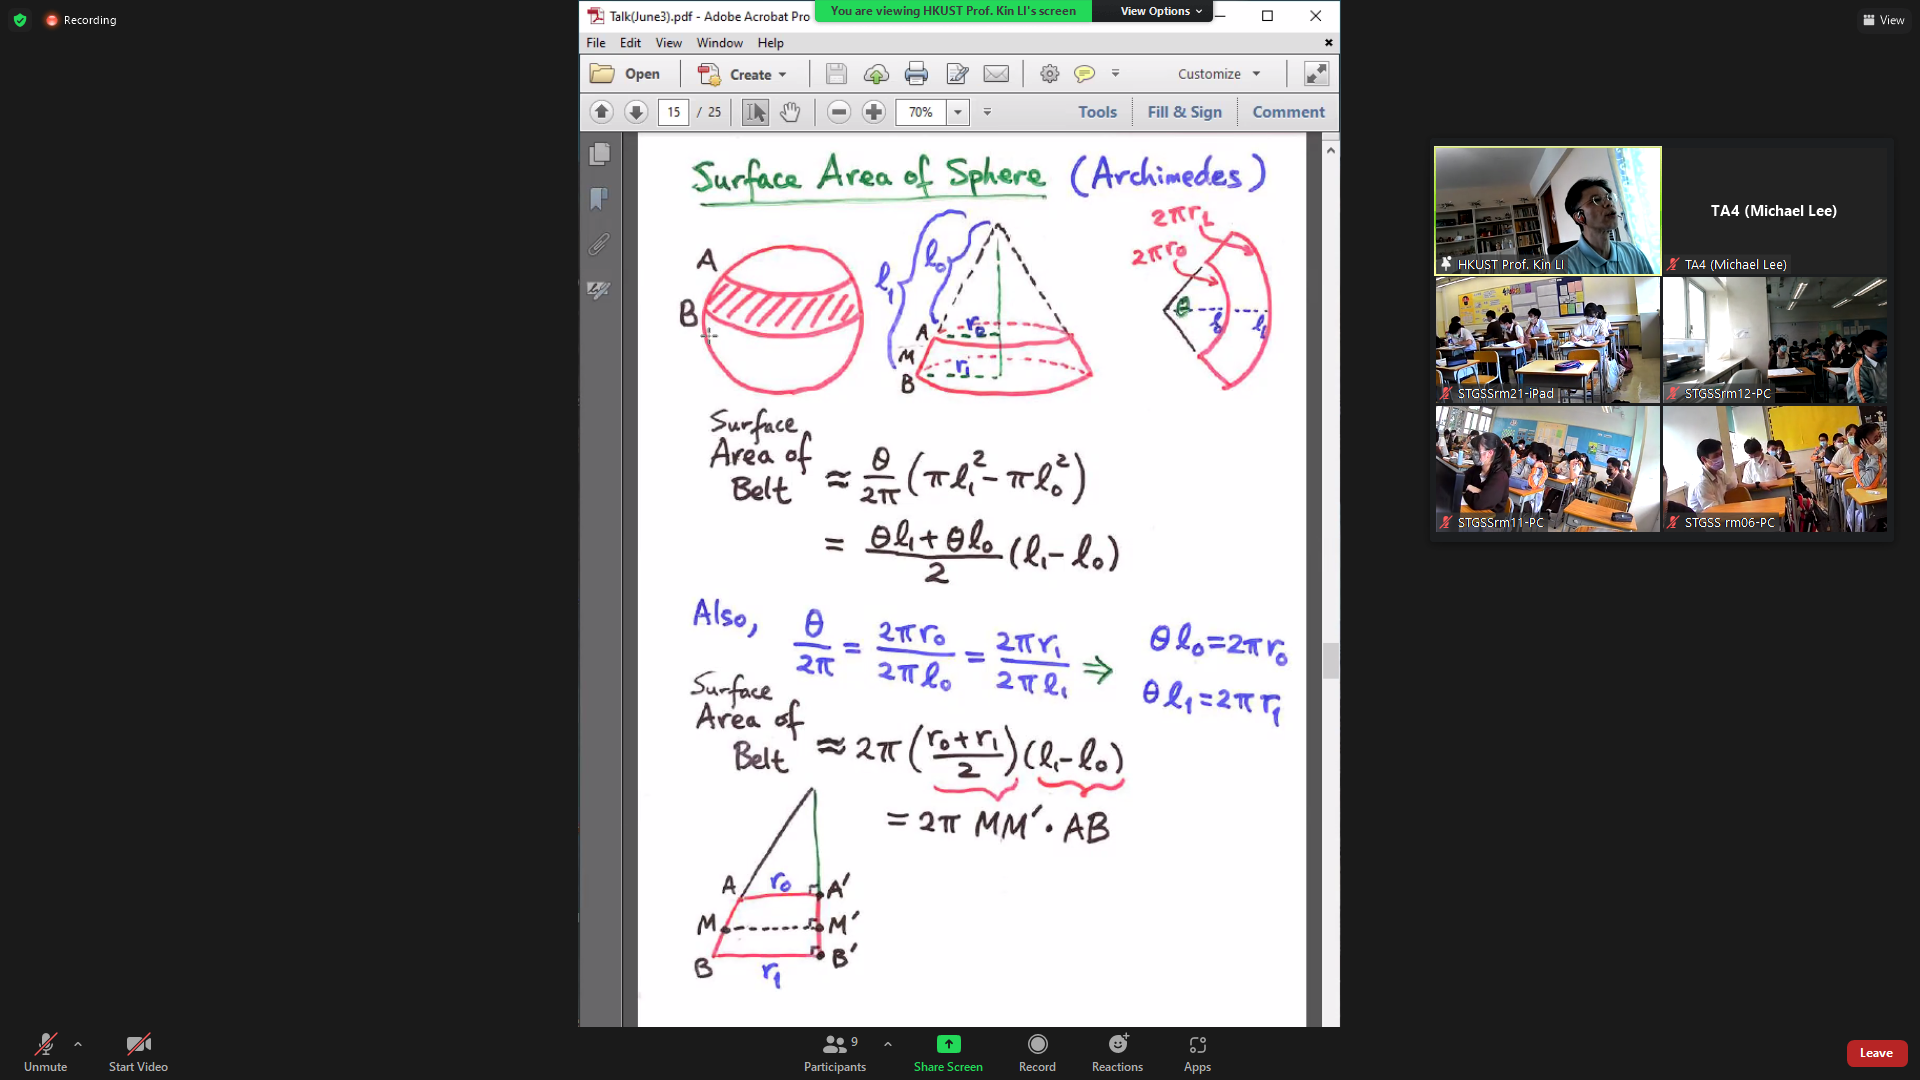 Recording
Talk(June3).pdf - Adobe Acrobat Pro
You are viewing HKUST Prof. Kin LI's screen
View Options
View
File Edit View Window Help
Open
Create
Customize
15 / 25
70%
Tools
Fill & Sign
Comment
Surface Area of Sphere (Archimedes)
A
B
l₁
l₀
r₀
r₁
A
M
B
2πr₁
2πr₀
θ
l₀
l₁
Surface
Area of
Belt
≈ θ/2π (πl₁² - πl₀²)
= (θl₁ + θl₀)/2 (l₁ - l₀)
Also, θ/2π = 2πr₀/2πl₀ = 2πr₁/2πl₁ ⇒ θl₀ = 2πr₀
θl₁ = 2πr₁
Surface
Area of
Belt
≈ 2π ((r₀+r₁)/2) (l₁ - l₀)
= 2π MM′ · AB
A r₀ A′
M M′
B r₁ B′
TA4 (Michael Lee)
HKUST Prof. Kin LI
TA4 (Michael Lee)
STGSSrm21-iPad
STGSSrm12-PC
STGSSrm11-PC
STGSS rm06-PC
Unmute
Start Video
Participants
9
Share Screen
Record
Reactions
Apps
Leave